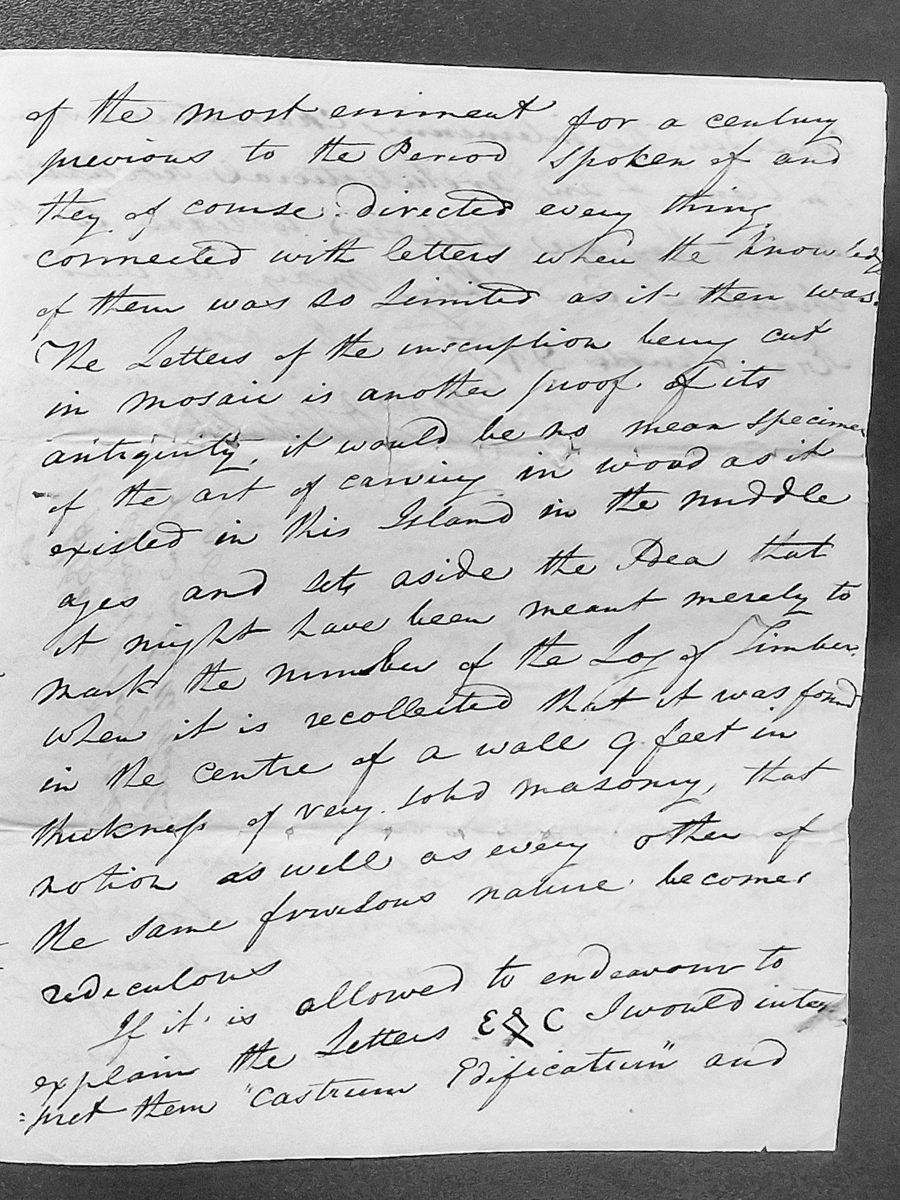 of the most eminent for a century
previous to the Period spoken of and
they of course directed every thing
connected with letters when the knowledg
of them was so Limited as it then was.
The Letters of the inscription being cut
in mosaic is another proof of its
antiquity, it would be no mean specimen
of the art of carving in wood as it
existed in this Island in the middle
ages and sets aside the Idea that
it might have been meant merely to
mark the number of the Log of Timber,
when it is recollected that it was found
in the centre of a wall 9 feet in
thickness of very solid masonry, that
notion as well as every other of
the same frivolous nature becomes
rediculous
If it is allowed to endeavour to
explain the Letters E C I would inter
=pret them "Castrum Edificatum" and